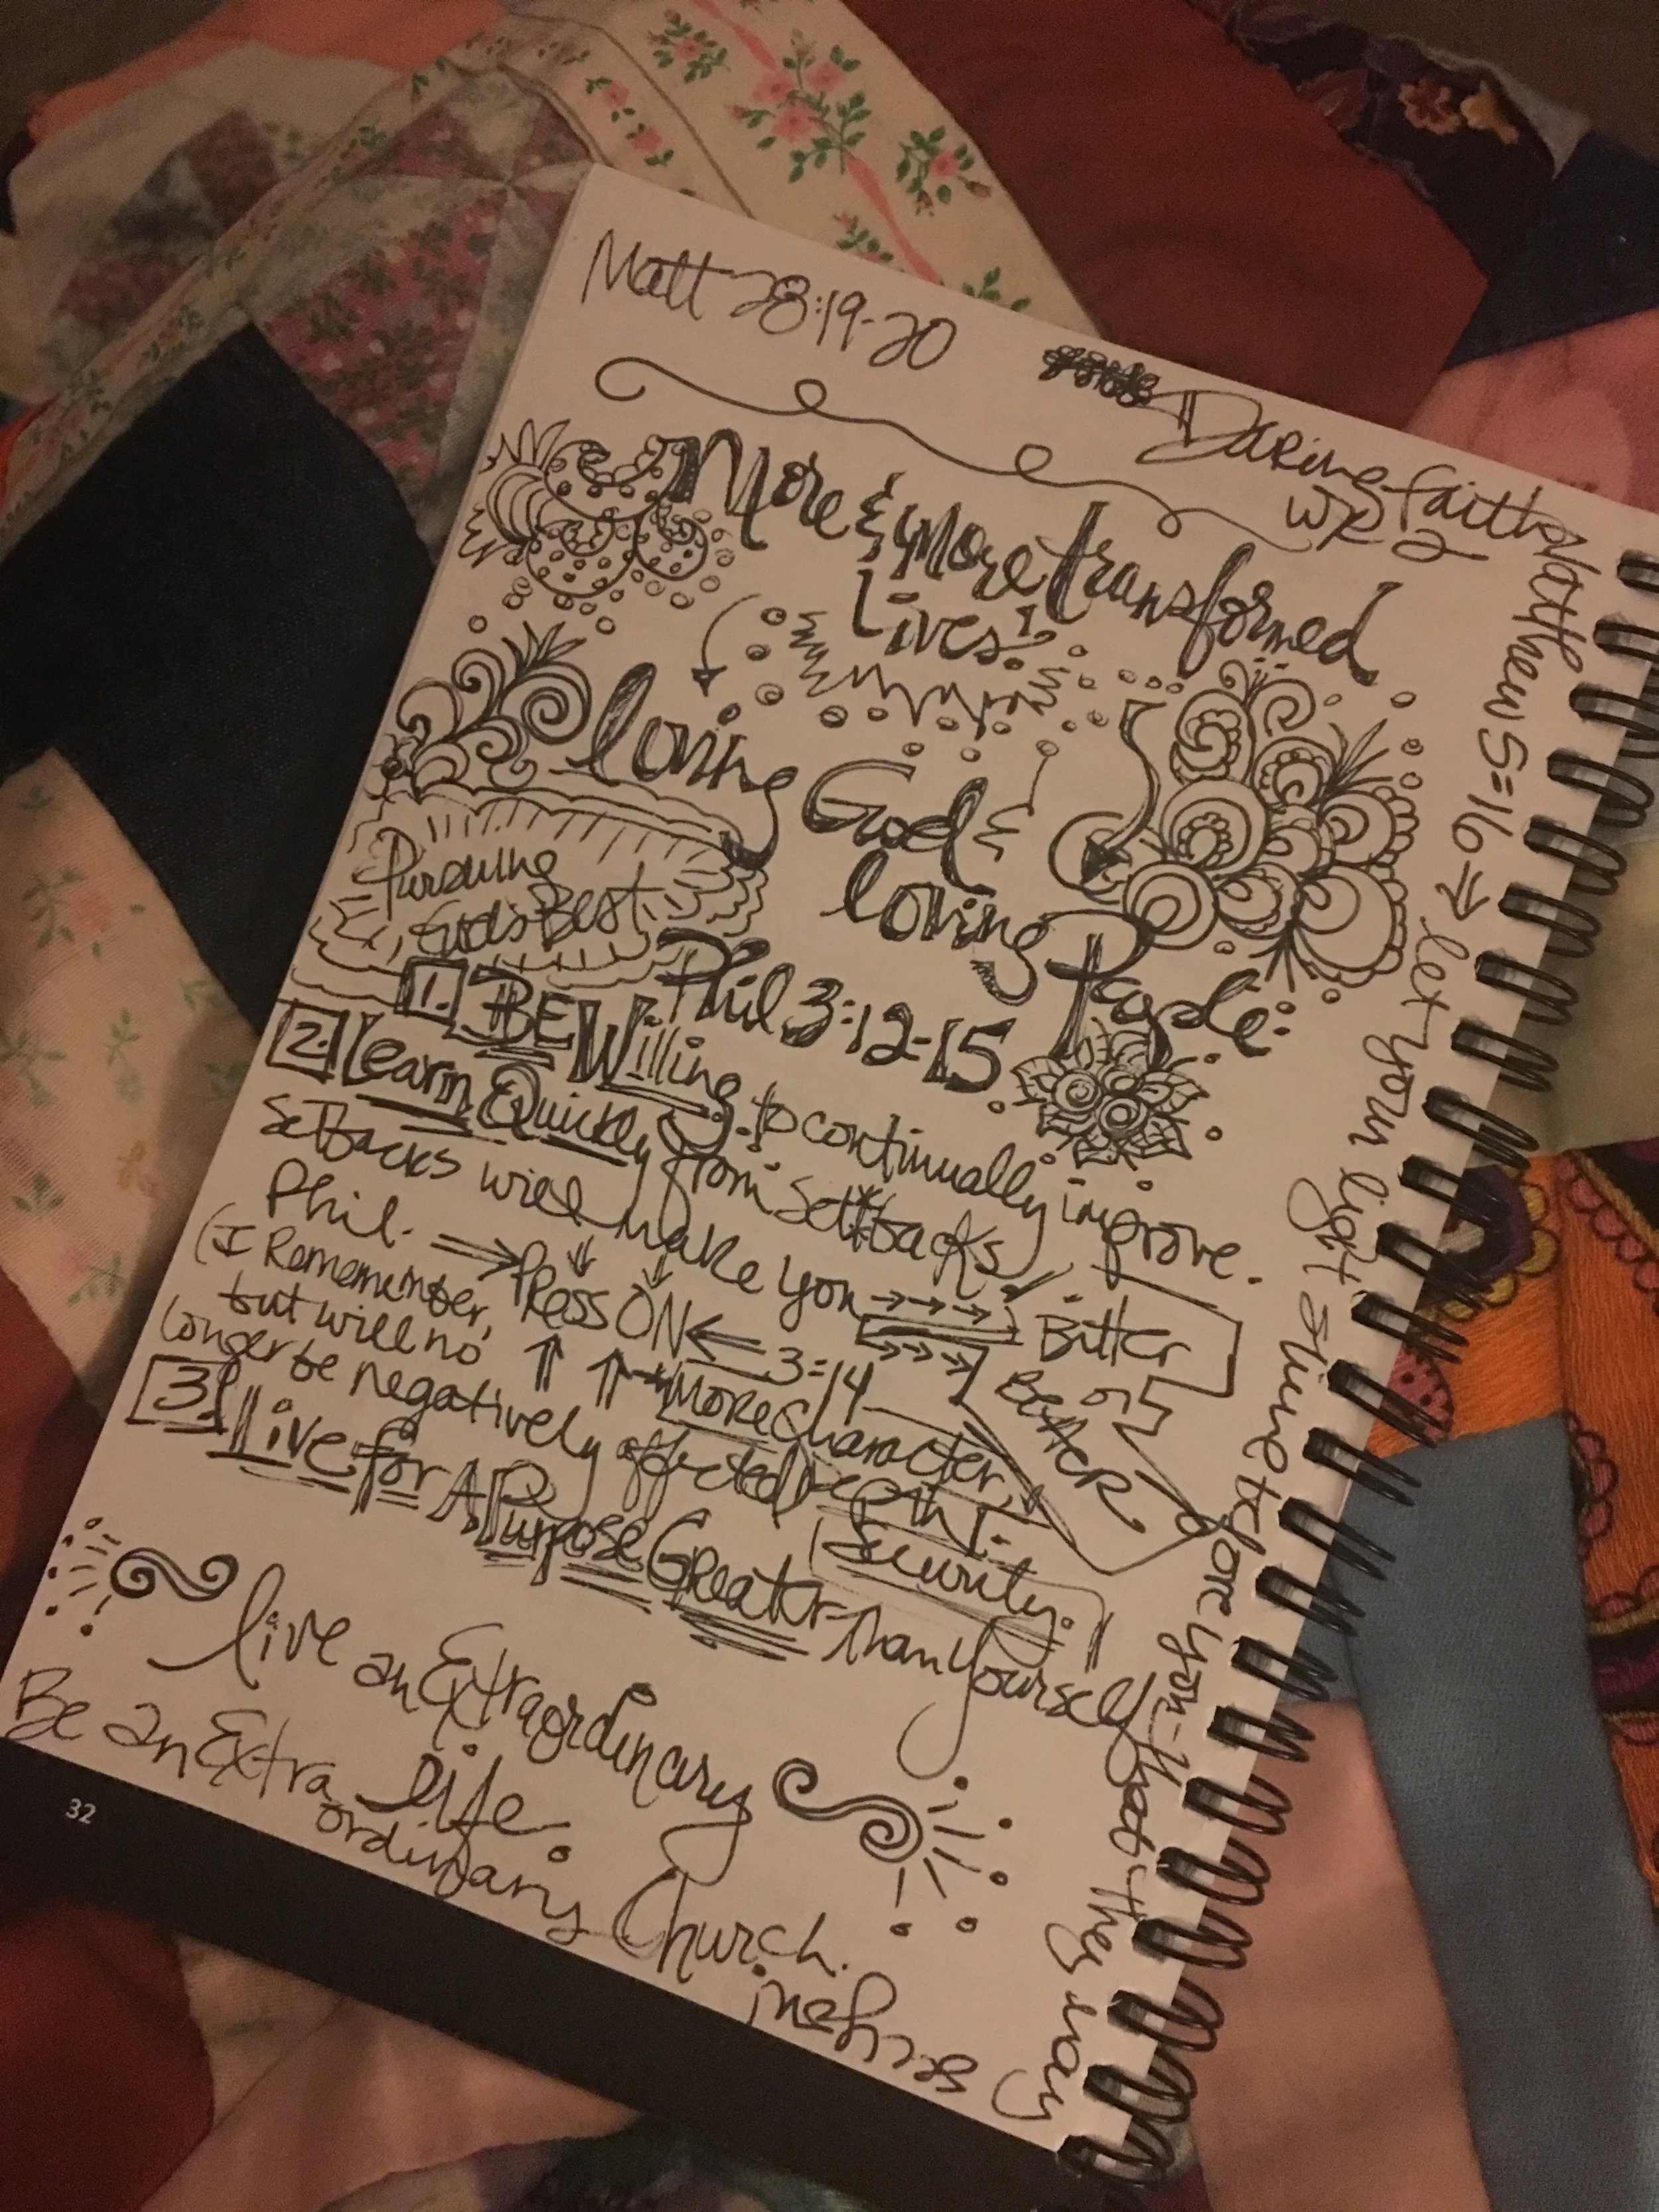 Matt 28:19-20
Daring Faith
WK 2
More & More transformed
Lives!
loving God &
loving People:
Pursuing
God's Best
Phil 3:12-15
1. BE Willing to continually improve.
2. Learn Quickly from Settbacks
Setbacks will make you
Bitter
or
Better
Phil. Press ON 3:14
(I Remember,
but will no
longer be negatively affected
More Character,
Depth &
Security.
3. Live for A Purpose Greater Than Yourself
live an Extraordinary
life.
Be an Extra
ordinary Church.
Matthew 5:16 → let your light shine before you - that they may